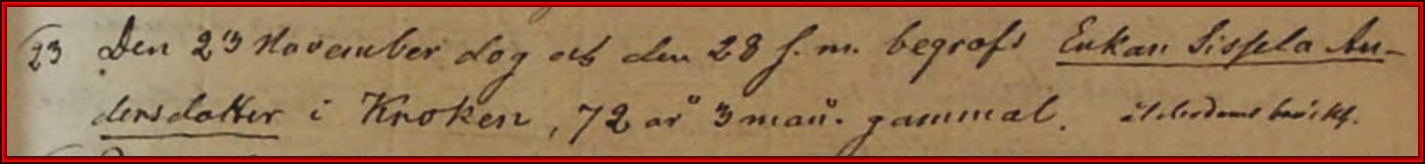 23 Den 23 November dog och den 28 s. m. begrofs Enkan Sissela An-
dersdotter i Kroken, 72 år 3 mån. gammal. ålderdoms bräckl.